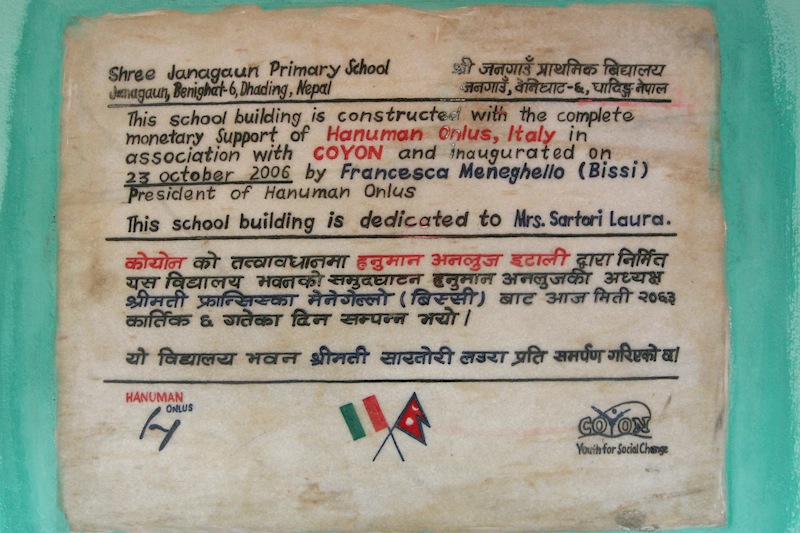 Shree Janagaun Primary School
Janagaun, Benighat-6, Dhading, Nepal
श्री जनगाउँ प्राथमिक बिद्यालय
जनगाउँ, वेनिघाट-६, धादिङ्ग नेपाल
This school building is constructed with the complete
monetary Support of Hanuman Onlus, Italy in
association with COYON and inaugurated on
23 october 2006 by Francesca Meneghello (Bissi)
President of Hanuman Onlus
This school building is dedicated to Mrs. Sartori Laura.
कोयोन को तत्वावधानमा हनुमान अनलुज इटाली द्वारा निर्मित
यस विद्यालय भवनको समुदघाटन हनुमान अनलुजकी अध्यक्ष
श्रीमती फ्रान्सिस्का मेनेगेल्लो (बिस्सी) बाट आज मिती २०६३
कार्तिक ६ गतेका दिन सम्पन्न भयो।
यो विद्यालय भवन श्रीमती सारतोरी लउरा प्रति समर्पण गरिएको छ।
HANUMAN
ONLUS
COYON
Youth for Social Change